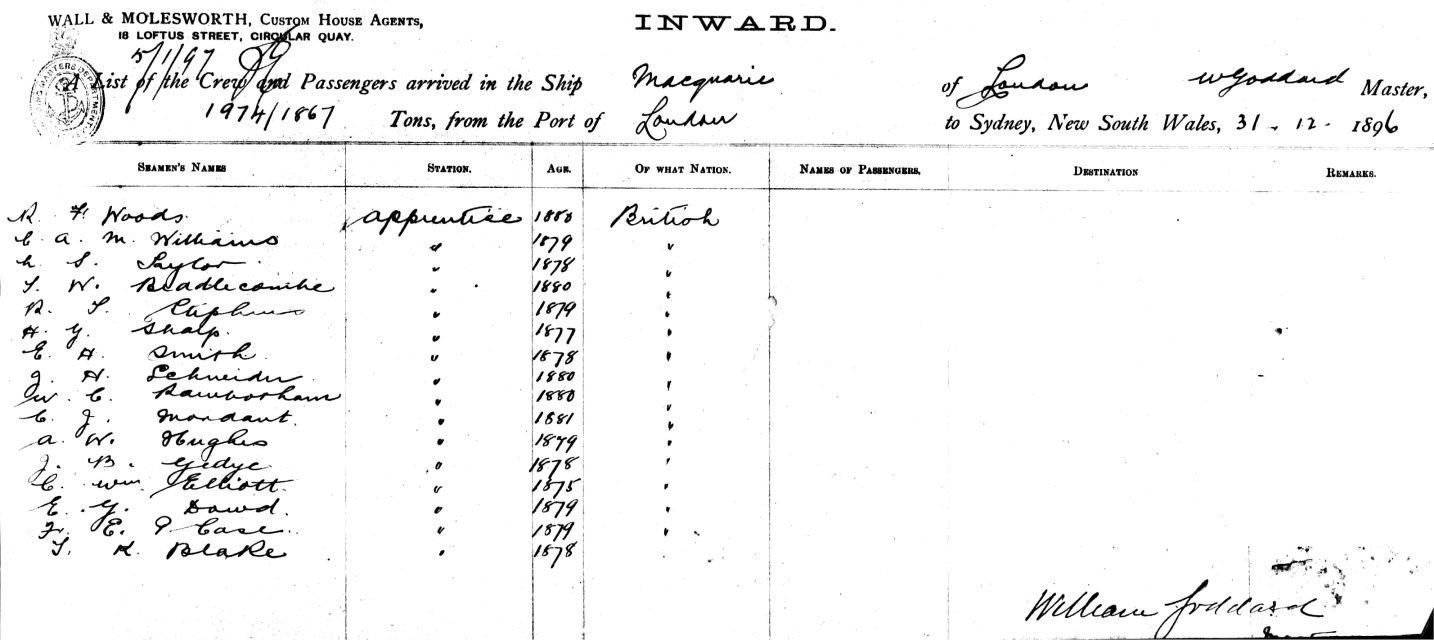 WALL & MOLESWORTH, CUSTOM HOUSE AGENTS,
18 LOFTUS STREET, CIRCULAR QUAY.
INWARD.
5/1/97
A List of the Crew and Passengers arrived in the Ship Macquarie of London W Goddard Master,
1974/1867 Tons, from the Port of London to Sydney, New South Wales, 31 - 12 - 1896
SEAMEN'S NAMES STATION. AGE. OF WHAT NATION. NAMES OF PASSENGERS, DESTINATION REMARKS.
R F. Woods apprentice 1880 British
C. A. M. Williams " 1879 "
S. Taylor " 1878 "
W. Beadlecombe " 1880 "
R. Stephens " 1879 "
H. G. Sharp. " 1877 "
E. H. Smith. " 1878 "
J. H. Schneider " 1880 "
W. C. Rambotham " 1880 "
C. J. Mordaut. " 1881 "
A. W. Hughes " 1879 "
J. B. Gedye " 1878 "
C. Wm Elliott. " 1875 "
E. G. Dowd. " 1879 "
Fr. E. P Case. " 1879 "
K. Blake " 1878
William Goddard